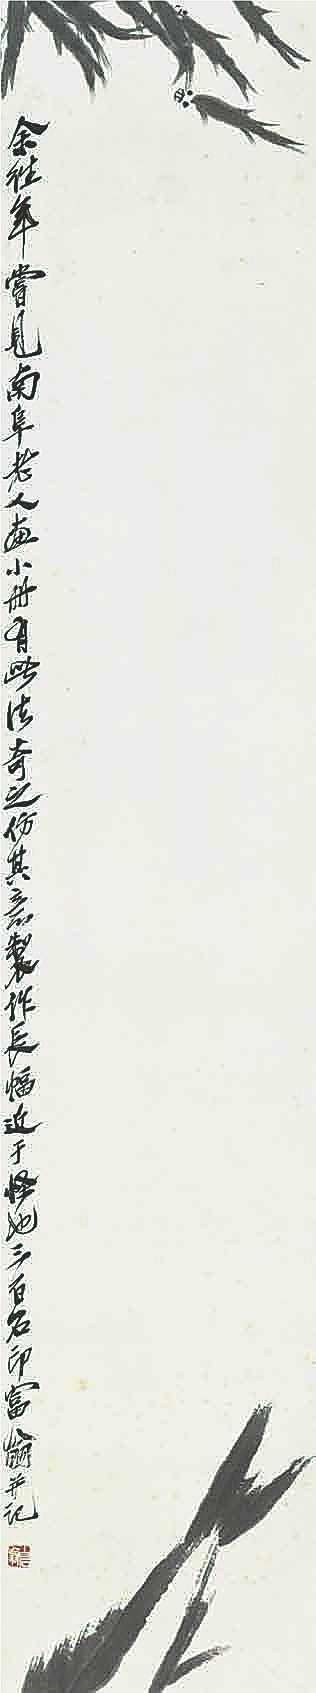 余往年嘗見南阜老人画小册有此法奇之仿其意製作長幅近于怪也三百石印富翁并记